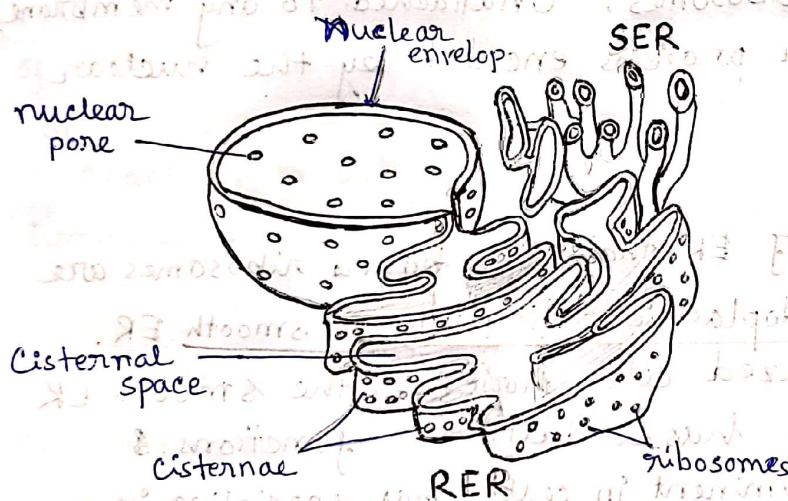 Nuclear
envelop
SER
nuclear
pore
Cisternal
space
Cisternae
RER
ribosomes